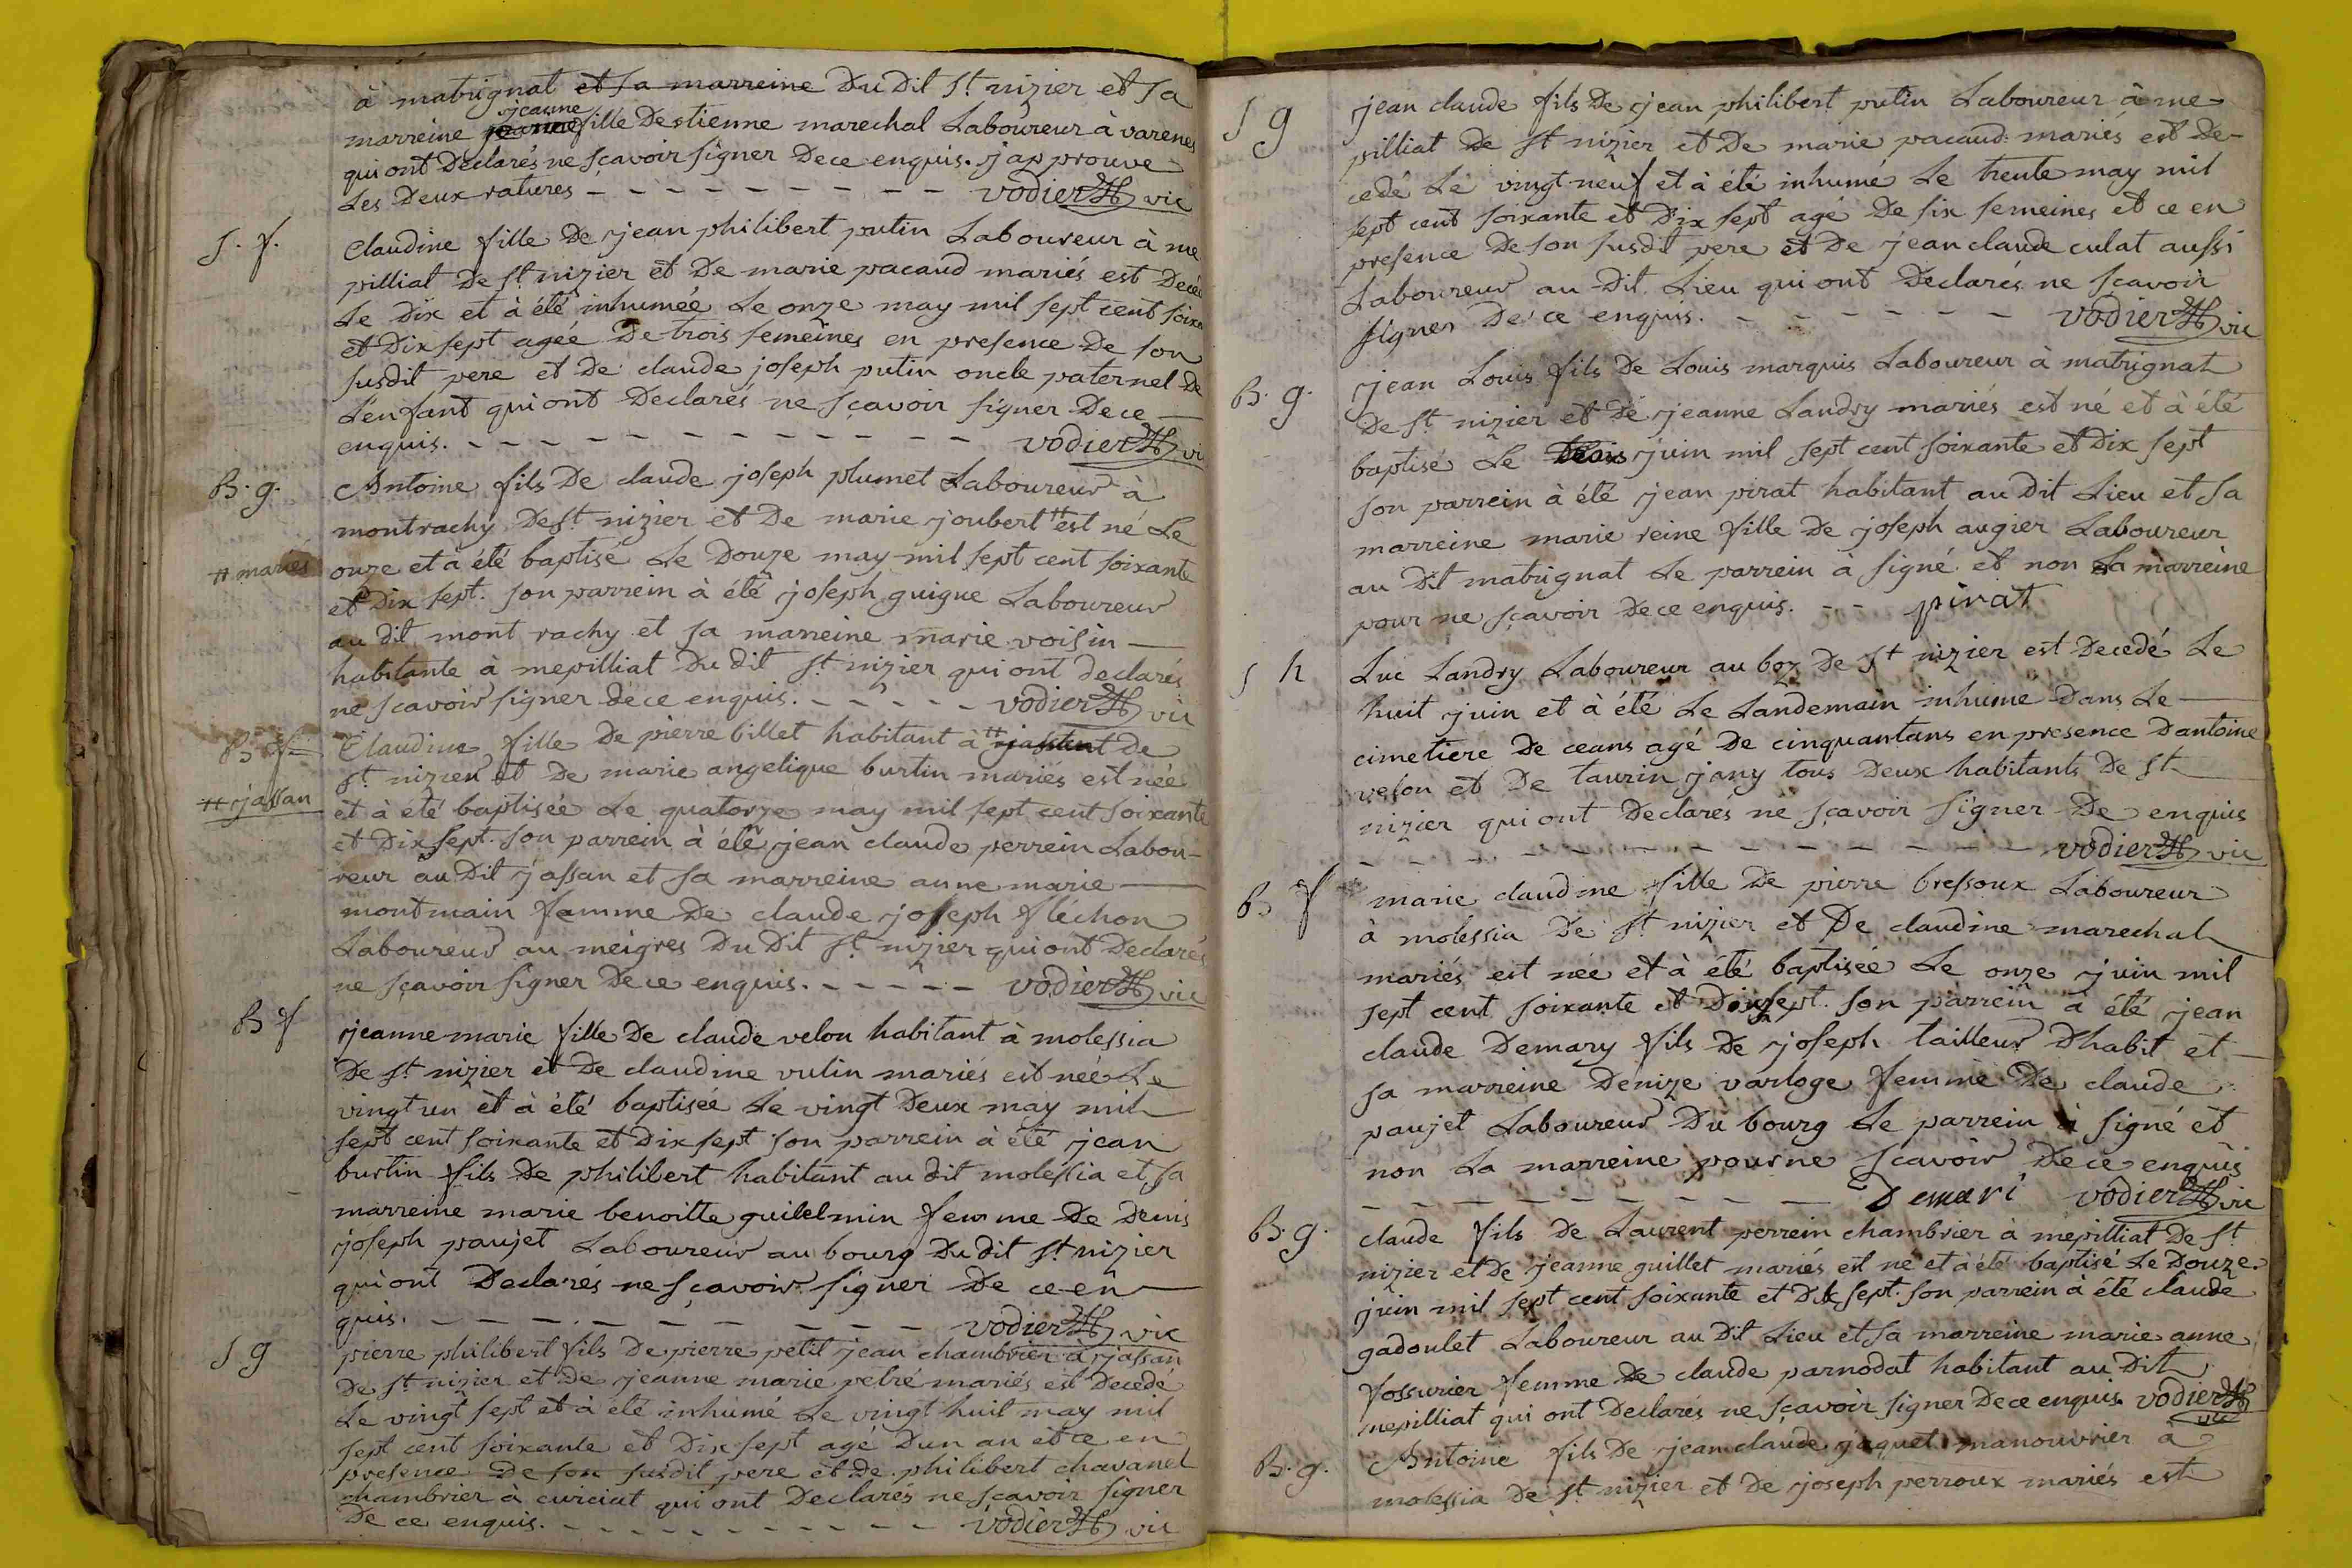 à matrignat et sa marreine Du Dit St nizier et Sa
jeanne
marreine fille Destienne marechal Laboureur à varenes
qui ont Declarés ne sçavoir signer De ce enquis. j'approuve
Les Deux ratures - - - - - - - - - vodier vic
S. f.
Claudine fille De jean philibert putin Laboureur à me
pilliat De St nizier et De marie pacaud mariés est Decé
Le Dix et à été inhumée Le onze may mil sept cent soix
et Dix sept agée De trois semeines en presence De son
susdit pere et De claude joseph putin oncle paternel De
L'enfant qui ont Declarés ne sçavoir signer De ce
enquis. - - - - - - - - - - - - vodier vi
B. g.
Antoine fils De claude joseph plumet Laboureur à
montrachy De St nizier et De marie joubert # est né Le
# mariés
onze et à été baptisé Le Douze may mil sept cent soixante
et Dix sept. son parrein à été joseph guigue Laboureur
au dit mont rachy et sa marreine marie voisin
habitante à mepilliat Du dit St nizier qui ont declarés
ne sçavoir signer de ce enquis. - - - - - vodier vic
B f
Claudine fille De pierre billet habitant à # de
St nizier et De marie angelique burtin mariés est née
# jassan
et à été baptisée Le quatorze may mil sept cent soixante
et Dix sept. son parrein à été jean claude perrein Labou-
reur au Dit jassan et sa marreine anne marie
montmain famme De claude joseph fléchon
Laboureur au meigres Du Dit St nizier qui ont Declarés
ne sçavoir signer De ce enquis. - - - - - vodier vic
B f
jeanne marie fille De claude velon habitant à molessia
De St nizier et De claudine vulin mariés est née Le
vingt un et à été baptisée Le vingt Deux may mil
sept cent soixante et Dix sept son parrein à été jean
burtin fils De philibert habitant au dit molessia et sa
marreine marie benoitte guilelmin femme De Denis
joseph paujet Laboureur au bourg Du dit St nizier
qui ont Declarés ne sçavoir signer De ce en
quis. - - - - - - - - - vodier vic
S g
pierre philibert fils De pierre petit jean chambrier à jassan
De St nizier et De jeanne marie pelré mariés est Decedé
Le vingt sept et à été inhumé Le vingt huit may mil
sept cent soixante et Dix sept agé D'un an et ce en
presence De son susdit pere et De philibert chavanel
chambrier à curciat qui ont Declarés ne sçavoir signer
De ce enquis. - - - - - - - - - - vodier vic
S g
jean claude fils De jean philibert putin Laboureur à me-
pilliat De St nizier et De marie pacaud mariés est De-
cedé Le vingt neuf et à été inhumé Le trente may mil
sept cent soixante et Dix sept agé De six semeines et ce en
presence De son susdit pere et De jean claude culat aussi
Laboureur au Dit Lieu qui ont Declarés ne sçavoir
signer De ce enquis. - - - - - - vodier vic
B. g.
jean Louis fils De Louis marquis Laboureur à matrignat
De St nizier et De jeanne Landry mariés est né et à été
baptisé Le trois juin mil sept cent soixante et Dix sept
son parrein à été jean pirat habitant au Dit Lieu et sa
marreine marie reine fille De joseph augier Laboureur
au Dit matrignat Le parrein à signé et non La marreine
pour ne sçavoir De ce enquis. - - pirat
S h
Luc Landry Laboureur au boz De St nizier est Decedé Le
huit juin et à été Le Landemain inhumé Dans Le
cimetiere De ceans agé De cinquantans en presence Dantoine
velon et De taurin jany tous Deux habitants De St
nizier qui ont Declarés ne sçavoir signer De enquis
- - - - - - - - - - - - - vodier vic
B f
marie claudine fille De pierre bressoux Laboureur
à molessia De St nizier et De claudine marechal
mariés est née et à été baptisée Le onze juin mil
sept cent soixante et Dix sept. son parrein à été jean
claude Demary fils De joseph tailleur D'habit et
sa marreine Denize varloge femme De claude
paujet Laboureur Du bourg Le parrein à signé et
non La marreine pour ne sçavoir De ce enquis
- - - - - - - - Demari vodier vic
B. g.
claude fils De Laurent perrein chambrier à mepilliat De St
nizier et De jeanne guillet mariés est né et à été baptisé Le Douze
juin mil sept cent soixante et Dix sept. son parrein à été claude
gadoulet Laboureur au Dit Lieu et sa marreine marie anne
fossurier femme De claude parnodat habitant au Dit
mepilliat qui ont Declarés ne sçavoir signer De ce enquis. vodier vic
B. g.
Antoine fils De jean claude jaquet manouvrier à
molessia De St nizier et De joseph perroux mariés est